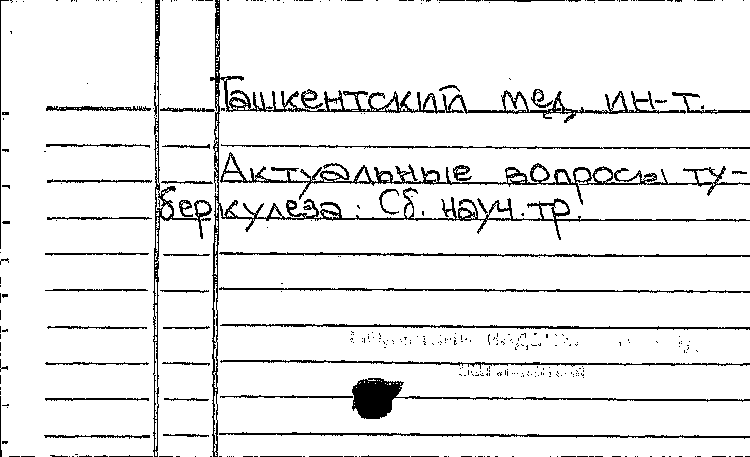 Ташкентский мед. ин-т.
Актуальные вопросы ту-
беркулеза: Сб. науч. тр.